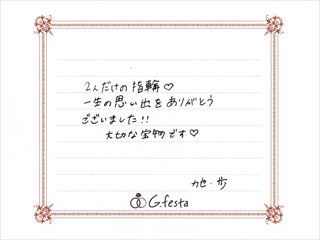 2人だけの指輪♡
一生の思い出をありがとう
ございました!!
大切な宝物です♡
G.festa